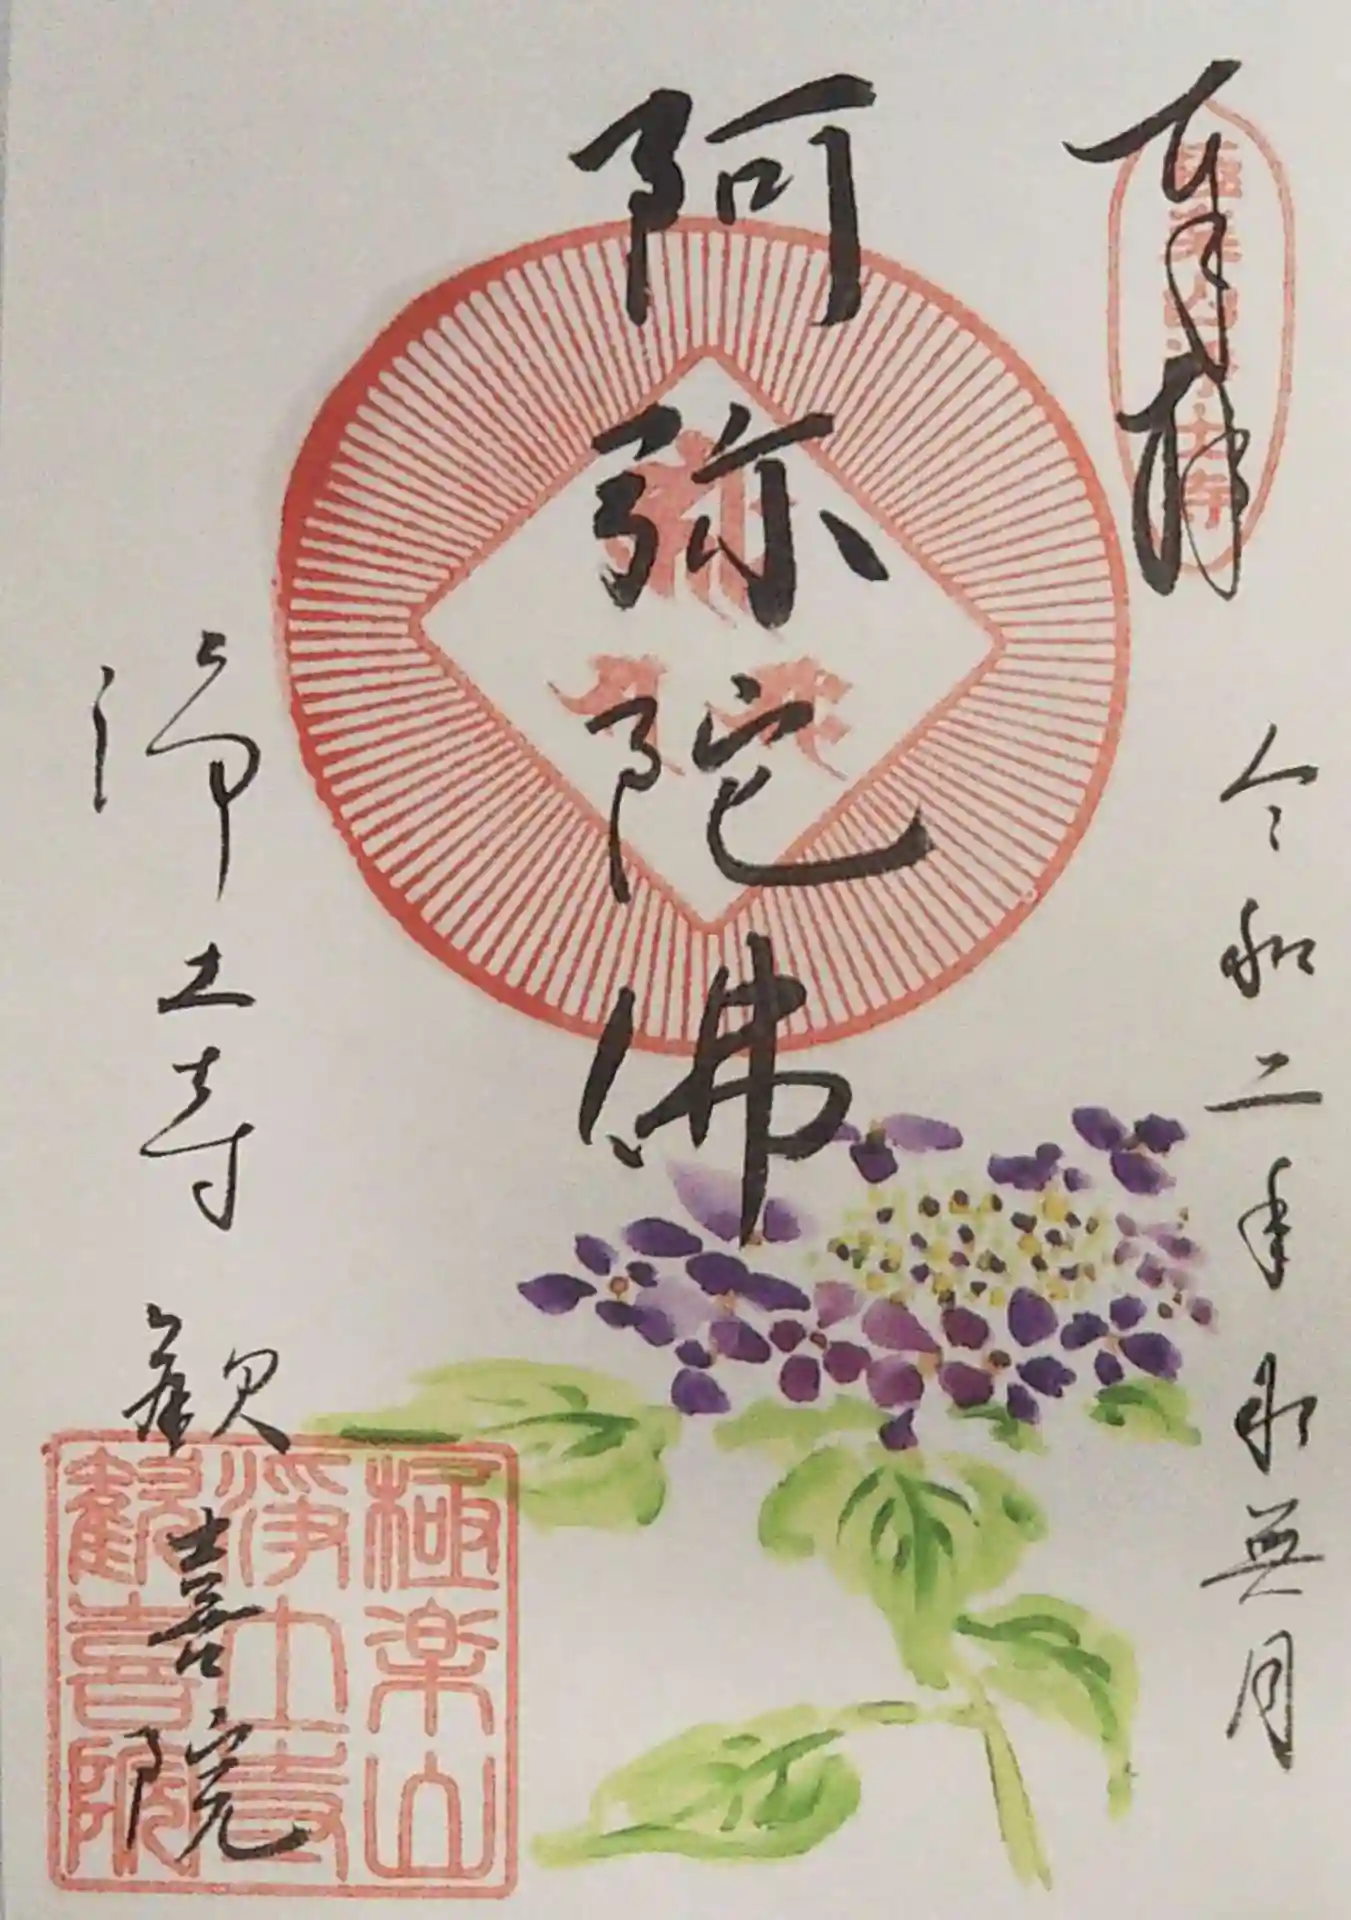 奉拝
極楽山浄土寺
令和二年水無月
阿弥陀佛
浄土寺 歓喜院
極楽山
浄土寺
歓喜院